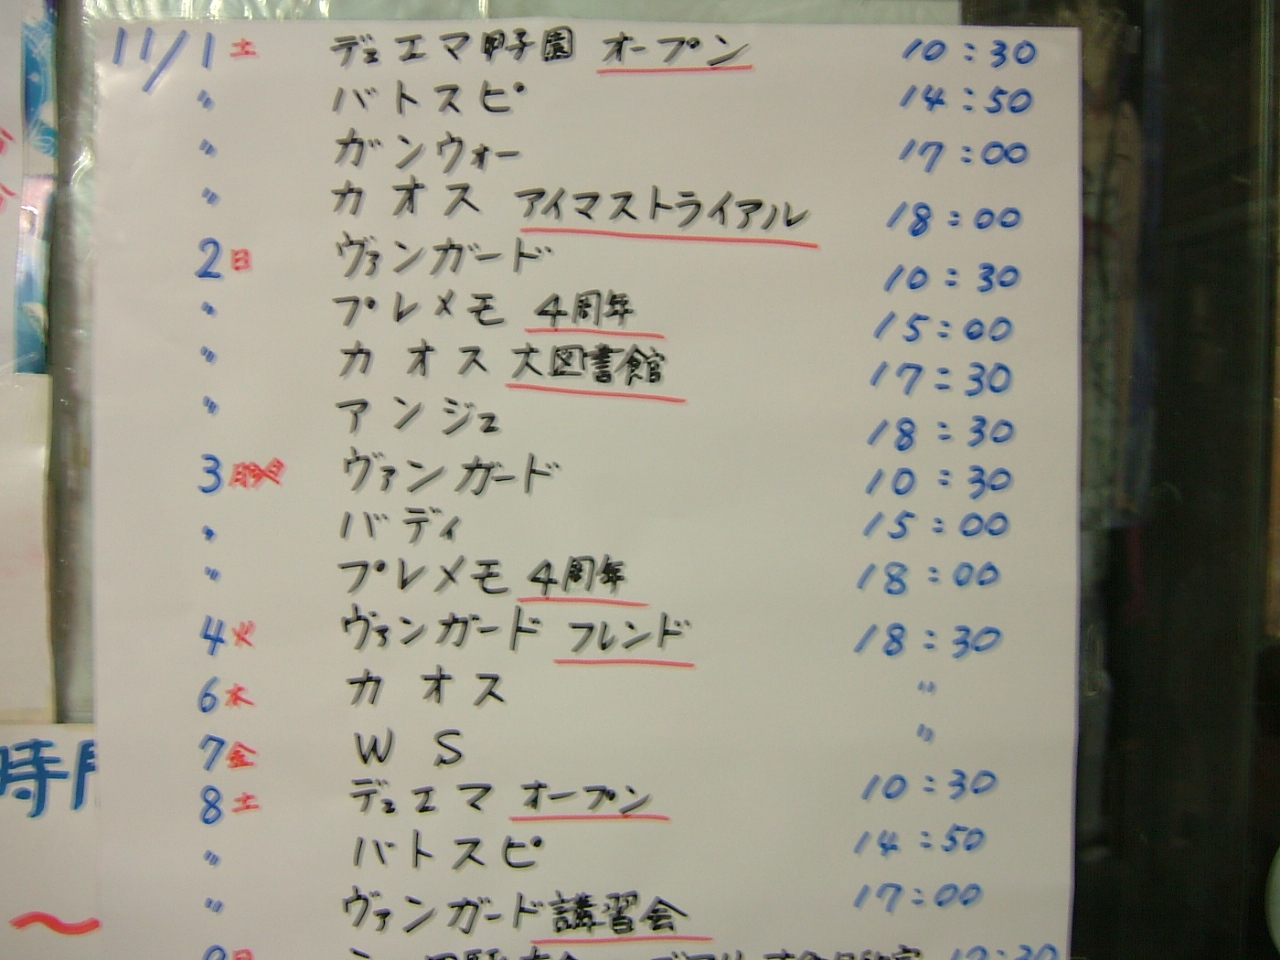 11/1 土 デュエマ甲子園 オープン 10:30
〃 バトスピ 14:50
〃 ガンウォー 17:00
〃 カオス アイマストライアル 18:00
2 日 ヴァンガード 10:30
〃 プレメモ 4周年 15:00
〃 カオス 大図書館 17:30
〃 アンジュ 18:30
3 月 ヴァンガード 10:30
〃 バディ 15:00
〃 プレメモ 4周年 18:00
4 火 ヴァンガード フレンド 18:30
6 木 カオス 〃
7 金 WS 〃
8 土 デュエマ オープン 10:30
〃 バトスピ 14:50
〃 ヴァンガード講習会 17:00
時